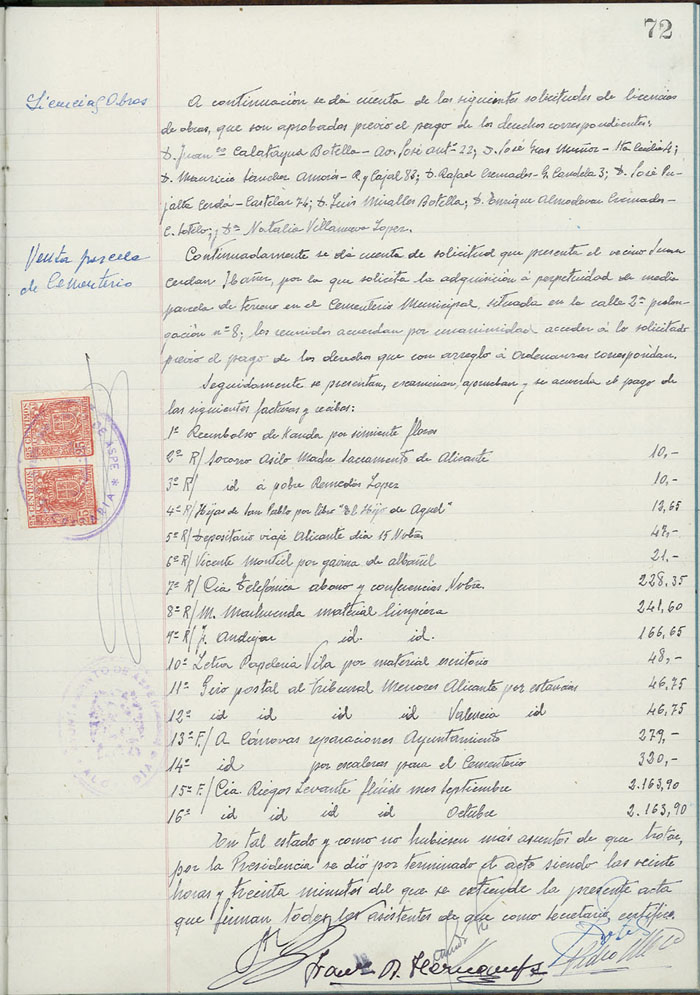 72
Licencias Obras
A continuación se dá cuenta de las siguientes solicitudes de licencias
de obras, que son aprobadas previo el pago de los derechos correspondientes:
D. Juan Calatayud Botella - Av. José Antº 22; D. José Gras Muñoz - 4;
D. Mauricio Sánchez Amorós - R y Cajal 83; D. Rafael Cremades - G. Candela 3; D. José Pu-
jalte Cerdá - Castelar 74; D. Luis Miralles Botella; D. Enrique Almodovar Cremades -
C. Sotelo; Dª Natalia Villanueva Lopez.
Venta parcela
de Cementerio
Continuadamente se dá cuenta de solicitud que presenta el vecino Juan
Cerdan Ibañez, por la que solicita la adquisición á perpetuidad de media
parcela de terreno en el Cementerio Municipal, situada en la calle 2ª prolon-
gación nº 8; los reunidos acuerdan por unanimidad acceder á lo solicitado
previo el pago de los derechos que con arreglo á Ordenanzas correspondan.
Seguidamente se presentan, examinan, aprueban y se acuerda el pago de
las siguientes facturas y recibos:
1º Reembolso de por simiente flores
2º R/ Socorro Asilo Madre Sacramento de Alicante 10,-
3º R/ id á pobre Remedios Lopez 10,-
4º R/ Hijas de San Pablo por libro "El Hijo de Aquel" 13,65
5º R/ Depositario viaje Alicante dia 15 Nobre
6º R/ Vicente Montiel por gaveta de albañil 21.-
7º R/ Cia Telefónica abono y conferencias Nobre. 228,35
8º R/ M. Marhuenda material limpieza 241,60
9º R/ J. Andujar id. id. 166,65
10º Letra Papeleria Vila por material escritorio 48,-
11º Giro postal al Tribunal Menores Alicante por estancias 46,75
12º id id id id Valencia id 46,75
13º F./ A Cánovas reparaciones Ayuntamiento 279,-
14º id por escaleras para el Cementerio 320,-
15º F./ Cia. Riegos Levante flúido mes Septiembre 2.163,90
16º id id id id Octubre 2.163,90
En tal estado y como no hubiesen más asuntos de que tratar,
por la Presidencia se dió por terminado el acto siendo las veinte
horas y treinta minutos del que se extiende la presente acta
que firman todos los asistentes de que como Secretario, certifico.